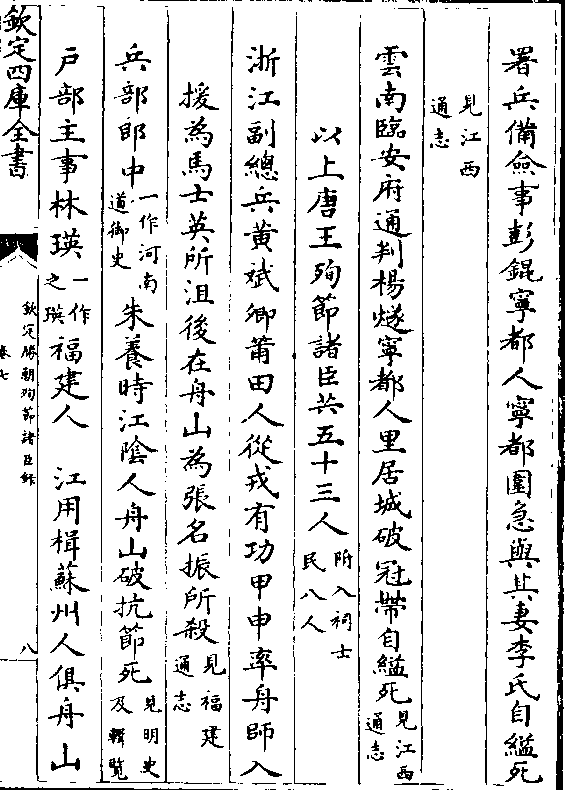 署兵備僉事彭錕寧都人寧都圍急與其妻李氏自縊死
見江西
通志
雲南臨安府通判楊燧寧都人里居城破冠帶自縊死見江西通志
以上唐王殉節諸臣共五十三人附入祠士民八人
浙江副總兵黃斌卿莆田人從戎有功甲申率舟師入
援為馬士英所沮後在舟山為張名振所殺見福建通志
兵部郎中一作河南道御史朱養時江陰人舟山破抗節死見明史及輯覽
戶部主事林瑛一作之瑛福建人 江用楫蘇州人俱舟山
欽定四庫全書
欽定勝朝殉節諸臣錄
卷七
八